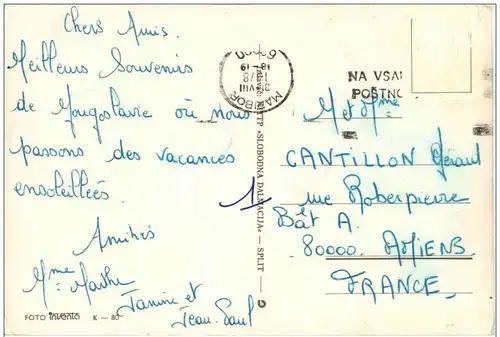 Chers Amis.
Meilleurs Souvenirs
de Yougoslavie où nous
passons des vacances
ensoleillées.
Amitiés
Mme Marthe
Janine et
Jean-Paul
FOTO inventa K — 80
MARIBOR
NTP »SLOBODNA DALMACIJA« — SPLIT —
1
NA VSA
POŠTNO
M et Mme
CANTILLON Gérard
rue Roberpierre
Bât A.
80000. AMIENS
FRANCE.